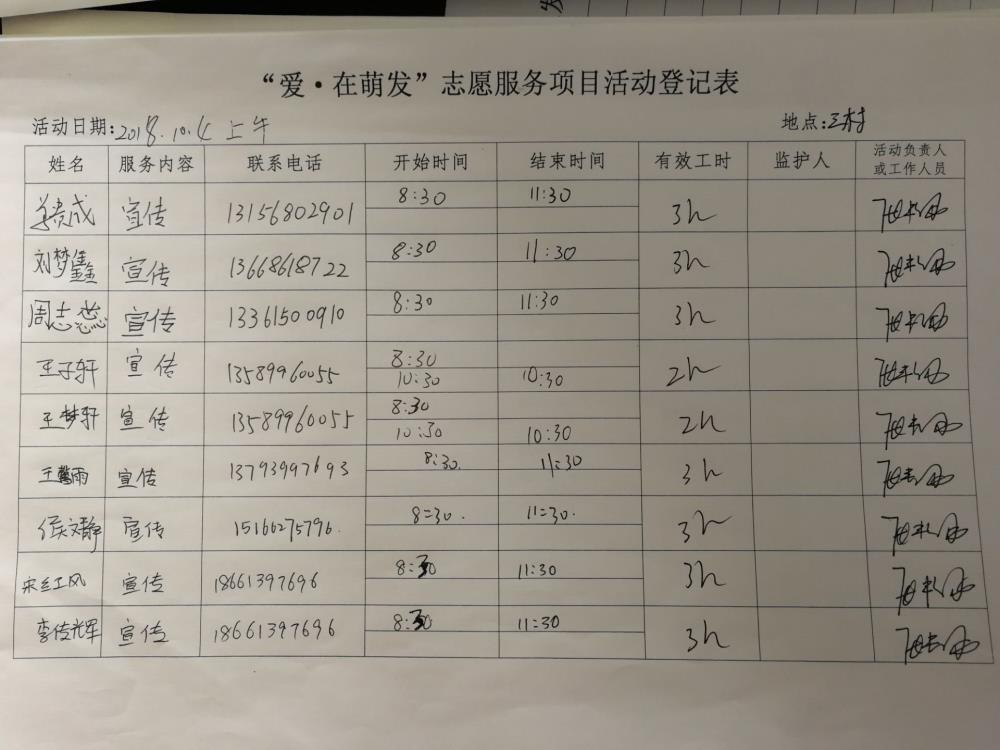 “爱·在萌发”志愿服务项目活动登记表
活动日期:2018.10.4 上午 地点:三村
姓名 服务内容 联系电话 开始时间 结束时间 有效工时 监护人 活动负责人或工作人员
成 宣传 13156802901 8:30 11:30 3h
刘梦鑫 宣传 13668618722 8:30 11:30 3h
周志 宣传 13361500910 8:30 11:30 3h
王子轩 宣传 13589960055 8:30 3h
10:30 10:30
王梦轩 宣传 13589960055 8:30 2h
10:30 10:30
王馨雨 宣传 13793997693 8:30. 11:30 3h
侯文静 宣传 15160275796. 8:30. 11:30. 3h
宋红风 宣传 18661397696 8:30 11:30 3h
李传光军 宣传 18661397696 8:30 11:30 3h